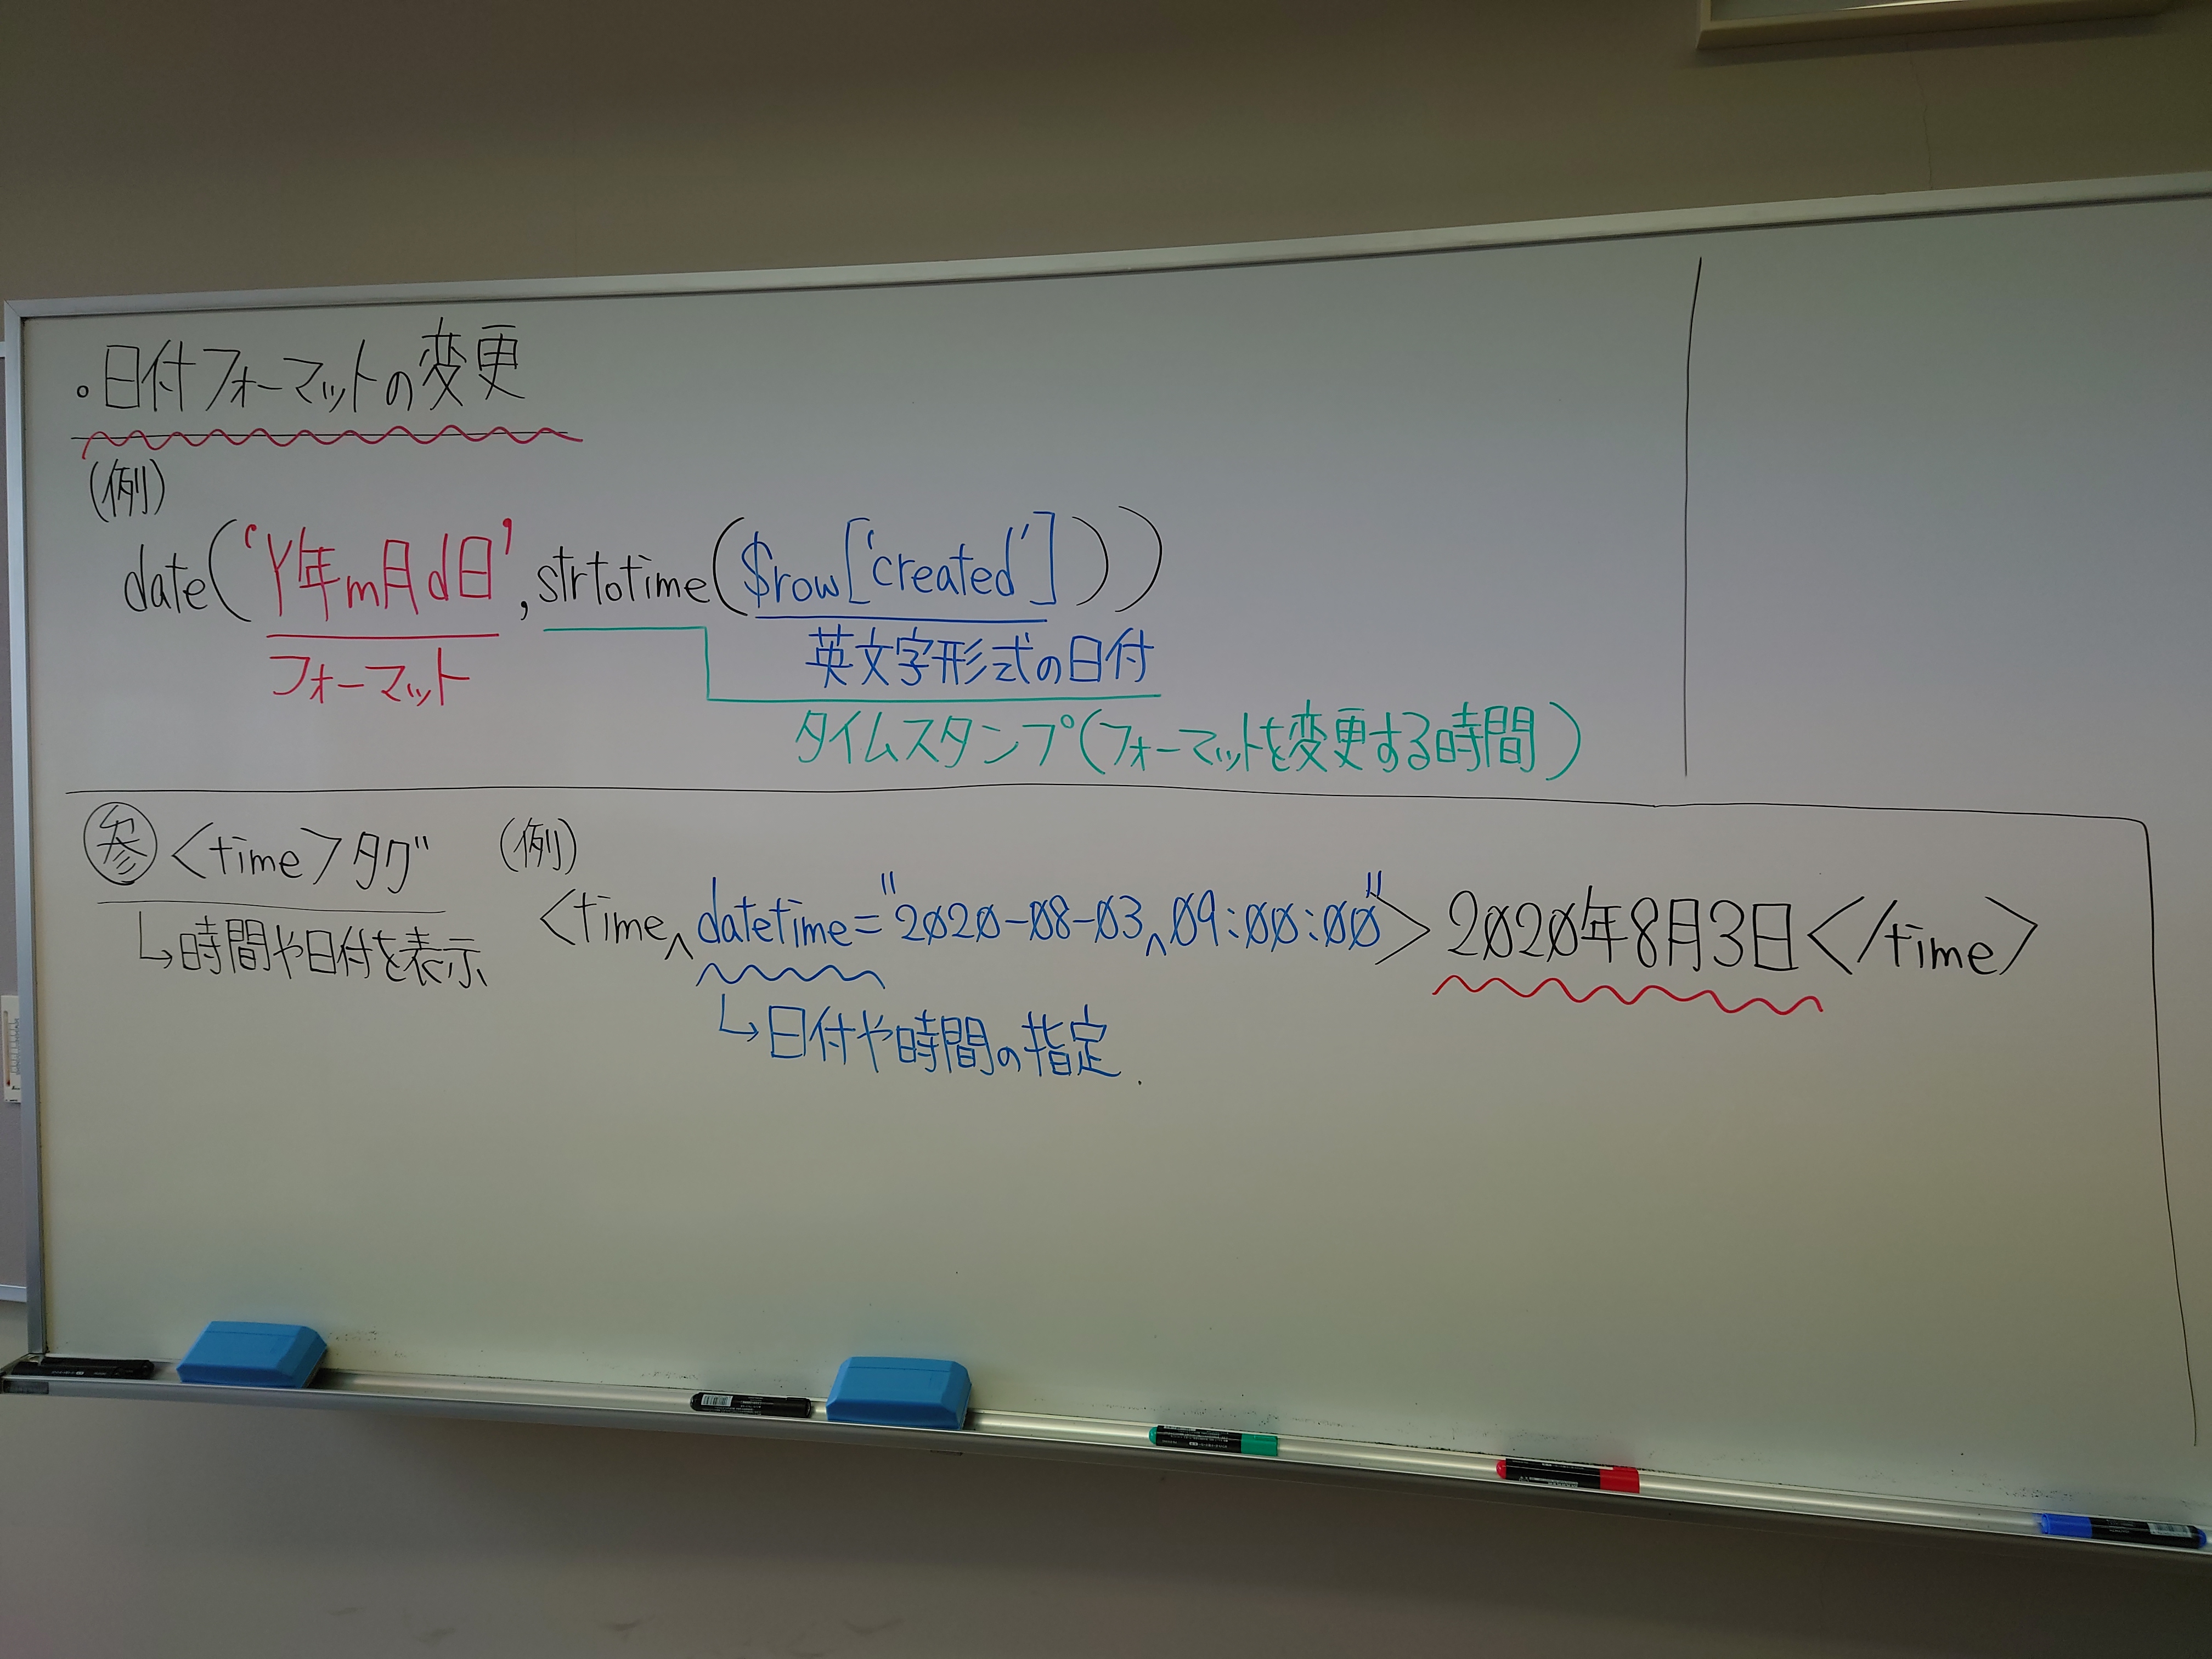 。日付フォーマットの変更
(例)
date('Y年m月d日', strtotime($row['created']))
フォーマット
英文字形式の日付
タイムスタンプ(フォーマットを変更する時間)
参 <time>タグ (例)
↳時間や日付を表示
<time^datetime="2020-08-03^09:00:00">2020年8月3日</time>
↳日付や時間の指定.